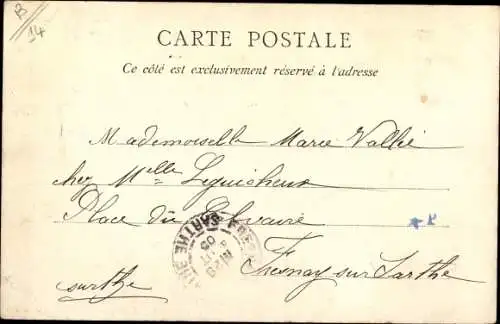 R
14
CARTE POSTALE
Ce côté est exclusivement réservé à l'adresse
Mademoiselle Marie Vallée
chez Melle Leguicheux
Place du
Fresnay sur Sarthe
Sarthe
SARTHE